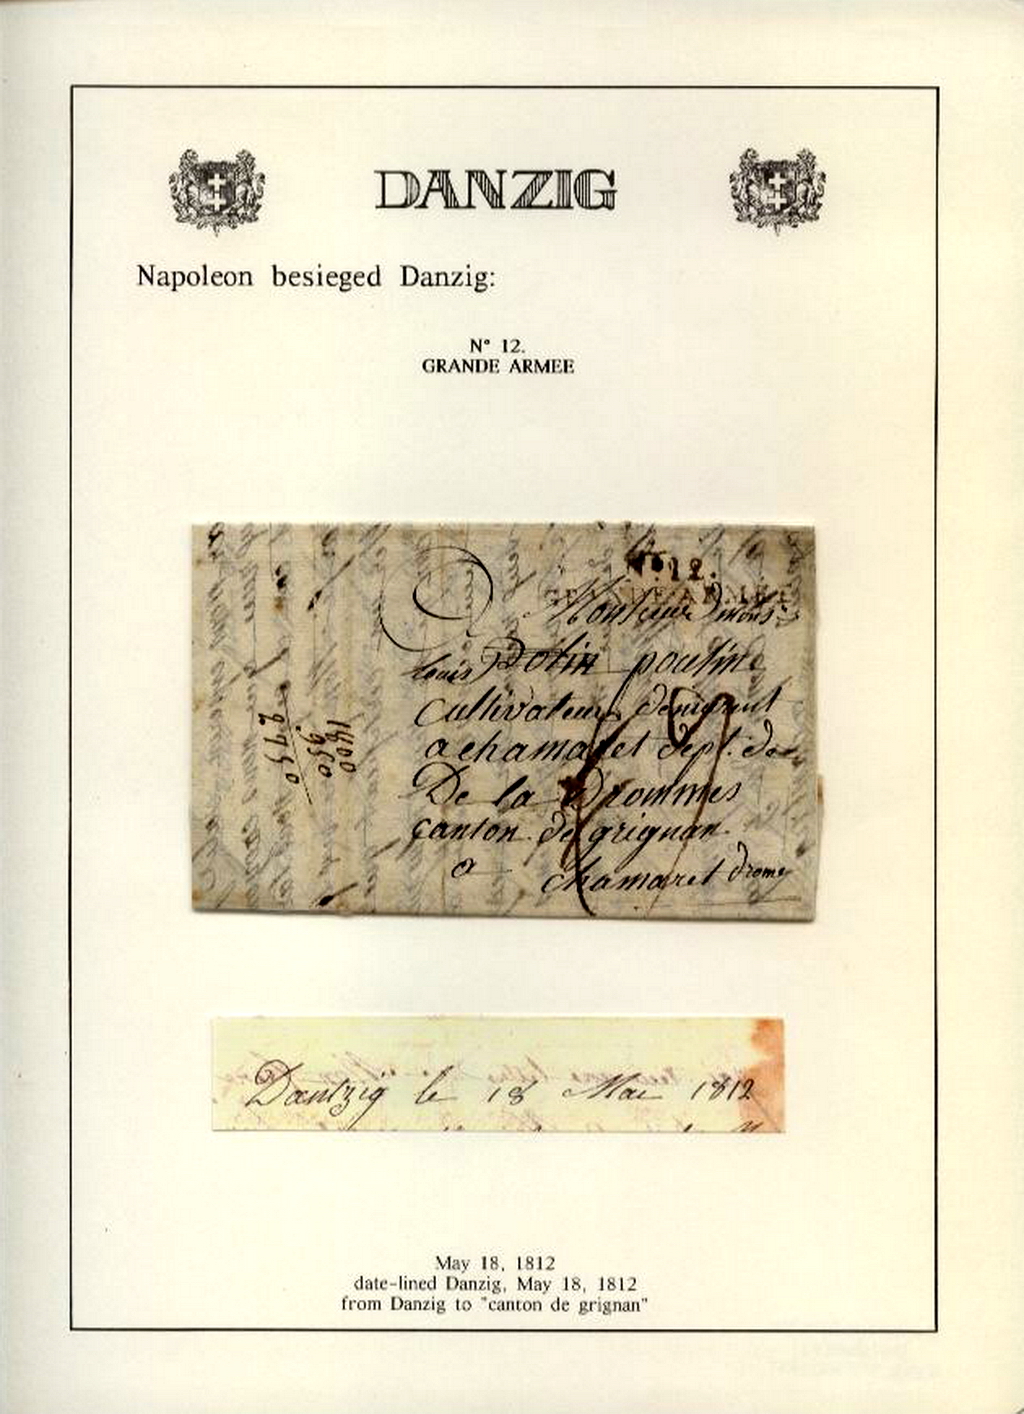 DANZIG
Napoleon besieged Danzig:
N° 12.
GRANDE ARMEE
No. 12.
GRANDE ARMÉE
Monsieur
louis
cultivateur
a chamaret dept. de
De la Drommes
canton de grignan
a chamaret drome
1800
950
2750
Dantzig le 18 Mai 1812
May 18, 1812
date-lined Danzig, May 18, 1812
from Danzig to "canton de grignan"